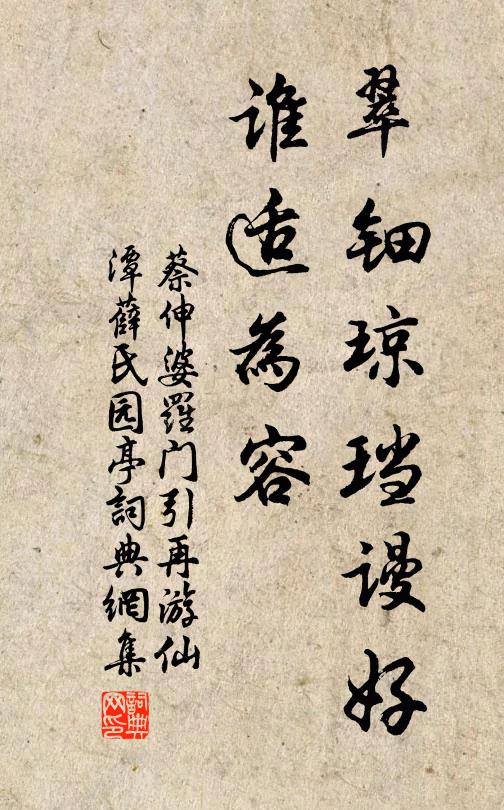 翠钿琼珰谩好
谁适為容
蔡伸婆羅门引再游仙
潭薛氏园亭詞典網集
詞典
网印